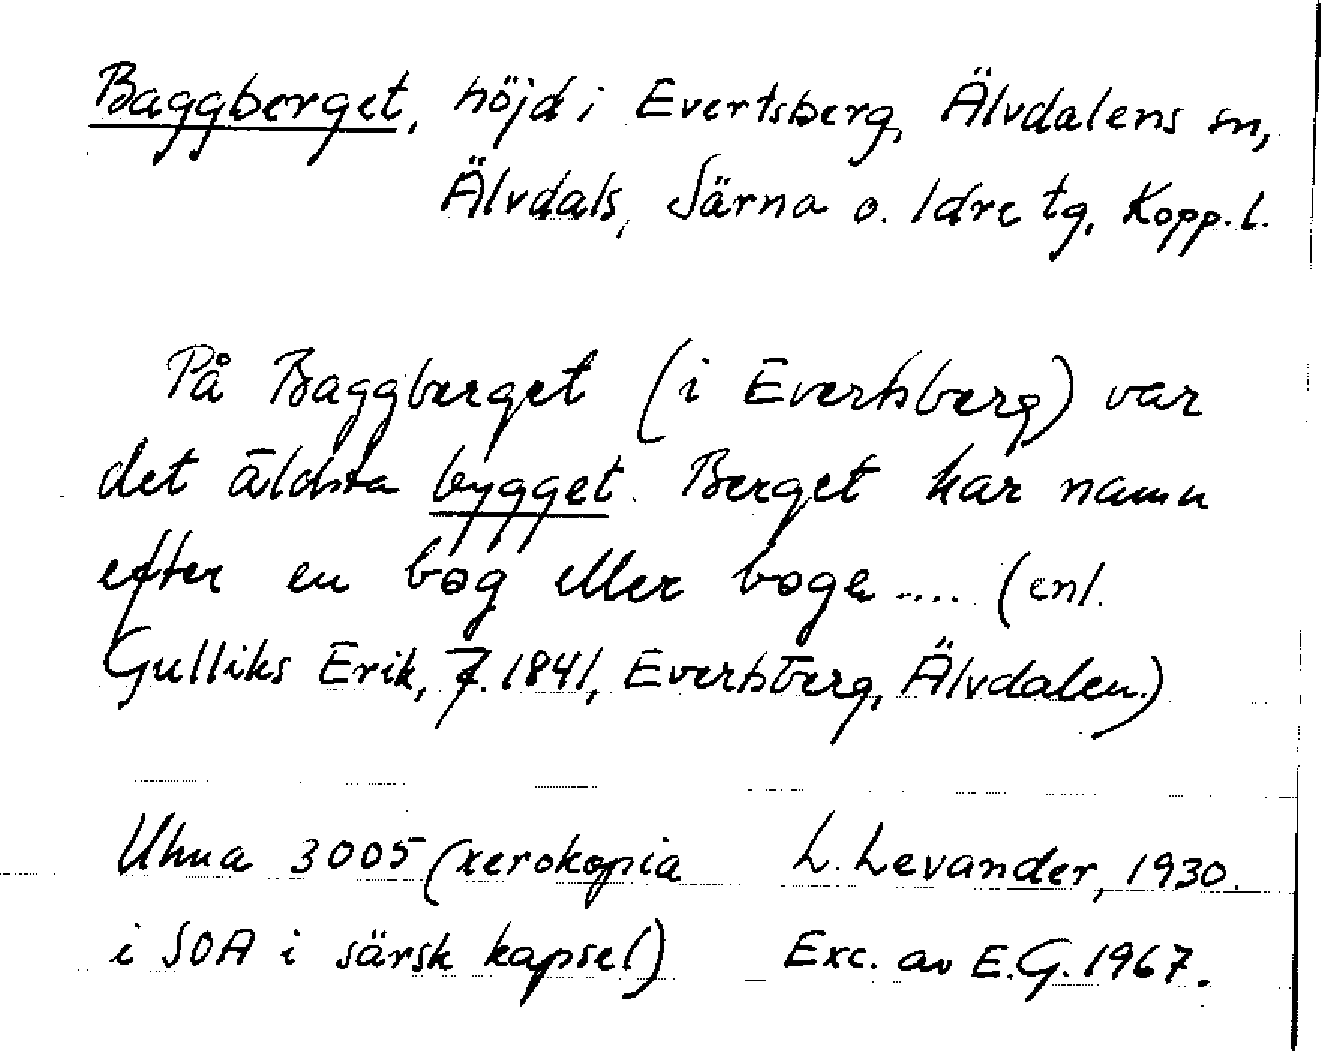 Baggberget, höjd i Evertsberg, Älvdalens sn,
Älvdals, Särna o. Idre tg, Kopp. l.
På Baggberget (i Evertsberg) var
det äldsta bygget. Berget har namn
efter en bog eller boge..... (enl.
Gulliks Erik, f. 1841, Evertsberg, Älvdalen.)
Uhma 3005 (xerokopia L. Levander, 1930.
i SOA i särsk kapsel) Exc. av E.G. 1967.